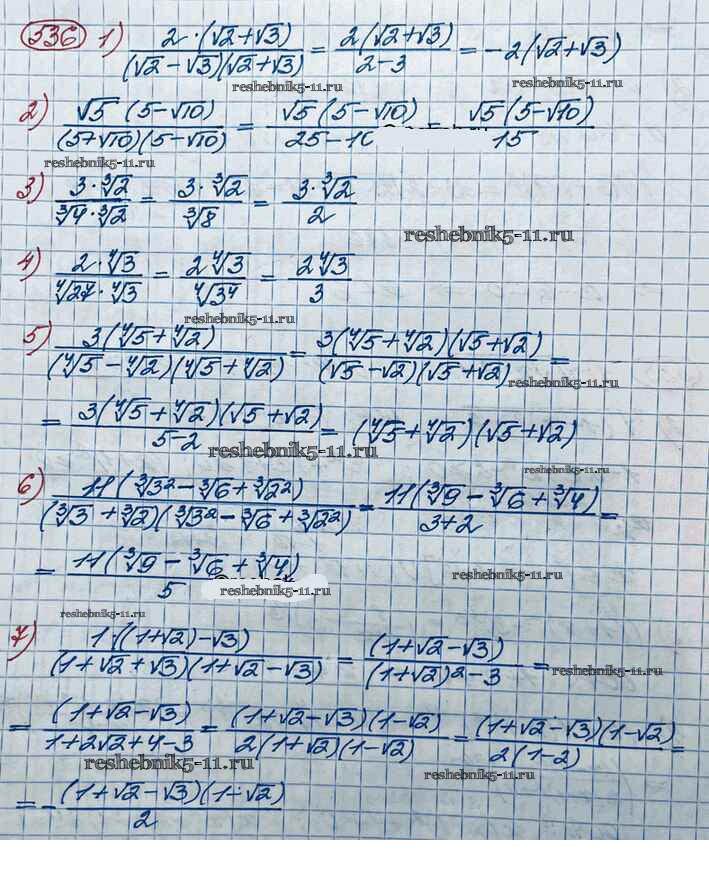 536 1) 2·(√2+√3) / (√2-√3)(√2+√3) = 2(√2+√3) / 2-3 = -2(√2+√3)
reshebnik5-11.ru
2) √5 (5-√10) / (5+√10)(5-√10) = √5 (5-√10) / 25-10 = √5 (5-√10) / 15
reshebnik5-11.ru
3) 3·∛2 / ∛4·∛2 = 3·∛2 / ∛8 = 3·∛2 / 2
reshebnik5-11.ru
4) 2·∜3 / ∜27·∜3 = 2∜3 / ∜3⁴ = 2∜3 / 3
reshebnik5-11.ru
5) 3(∜5+∜2) / (∜5-∜2)(∜5+∜2) = 3(∜5+∜2)(√5+√2) / (√5-√2)(√5+√2) =
reshebnik5-11.ru
= 3(∜5+∜2)(√5+√2) / 5-2 = (∜5+∜2)(√5+√2)
reshebnik5-11.ru
reshebnik5-11.ru
6) 11(∛3²-∛6+∛2²) / (∛3+∛2)(∛3²-∛6+∛2²) = 11(∛9-∛6+∛4) / 3+2 =
= 11(∛9-∛6+∛4) / 5
reshebnik5-11.ru
reshebnik5-11.ru
reshebnik5-11.ru
7) 1·((1+√2)-√3) / (1+√2+√3)(1+√2-√3) = (1+√2-√3) / (1+√2)²-3 =
reshebnik5-11.ru
= (1+√2-√3) / 1+2√2+4-3 = (1+√2-√3)(1-√2) / 2(1+√2)(1-√2) = (1+√2-√3)(1-√2) / 2(1-2) =
reshebnik5-11.ru
reshebnik5-11.ru
= - (1+√2-√3)(1-√2) / 2